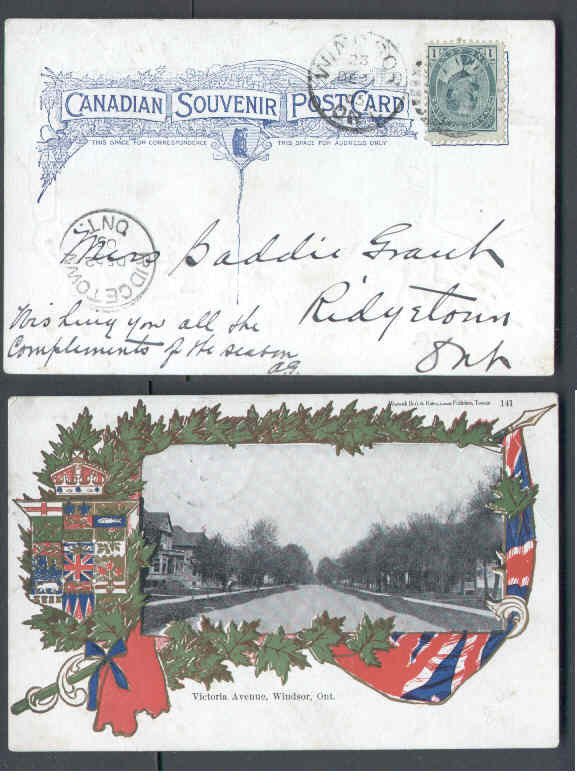 CANADIAN SOUVENIR POST CARD
THIS SPACE FOR CORRESPONDENCE THIS SPACE FOR ADDRESS ONLY
WINDSOR
23
ONT
1 1
RIDGETOWN
ONT.
Miss Saddie Grant
Ridgetown
Ont
Wishing you all the
Complements of the season
AG.
Warwick Bro's & Rutter, Limited Publishers, Toronto 141
Victoria Avenue, Windsor, Ont.